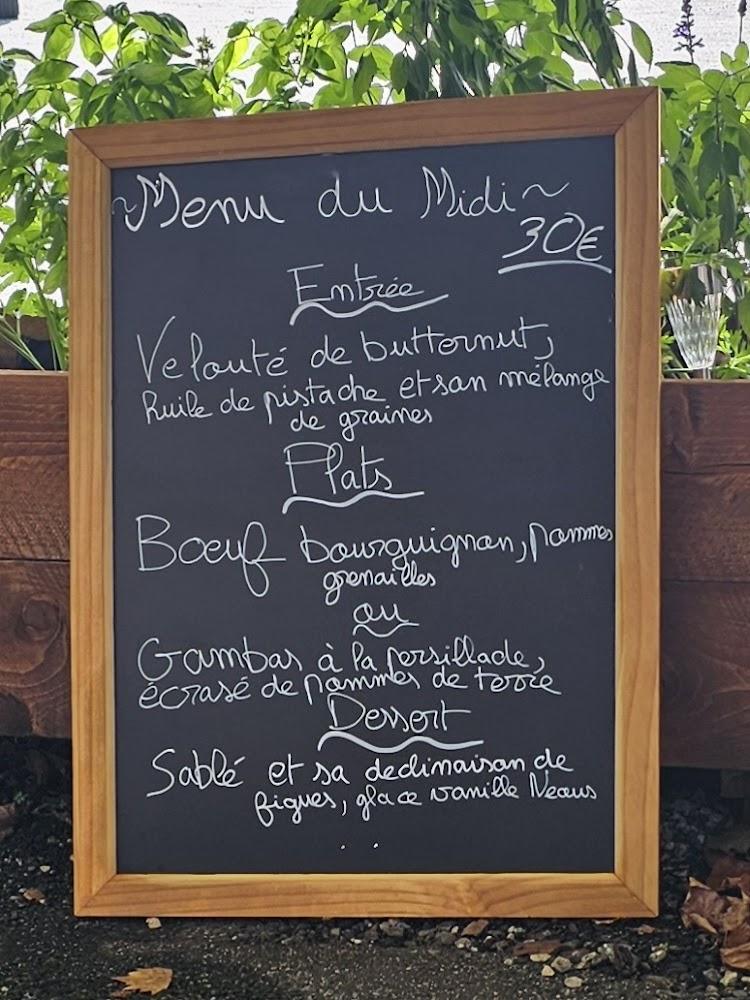 ~Menu du Midi~
30€
Entrée
Velouté de butternut,
huile de pistache et son mélange
de graines
Plats
Boeuf bourguignon, pommes
grenailles
ou
Gambas à la persillade,
écrasé de pommes de terre
Dessert
Sablé et sa declinaison de
figues, glace vanille